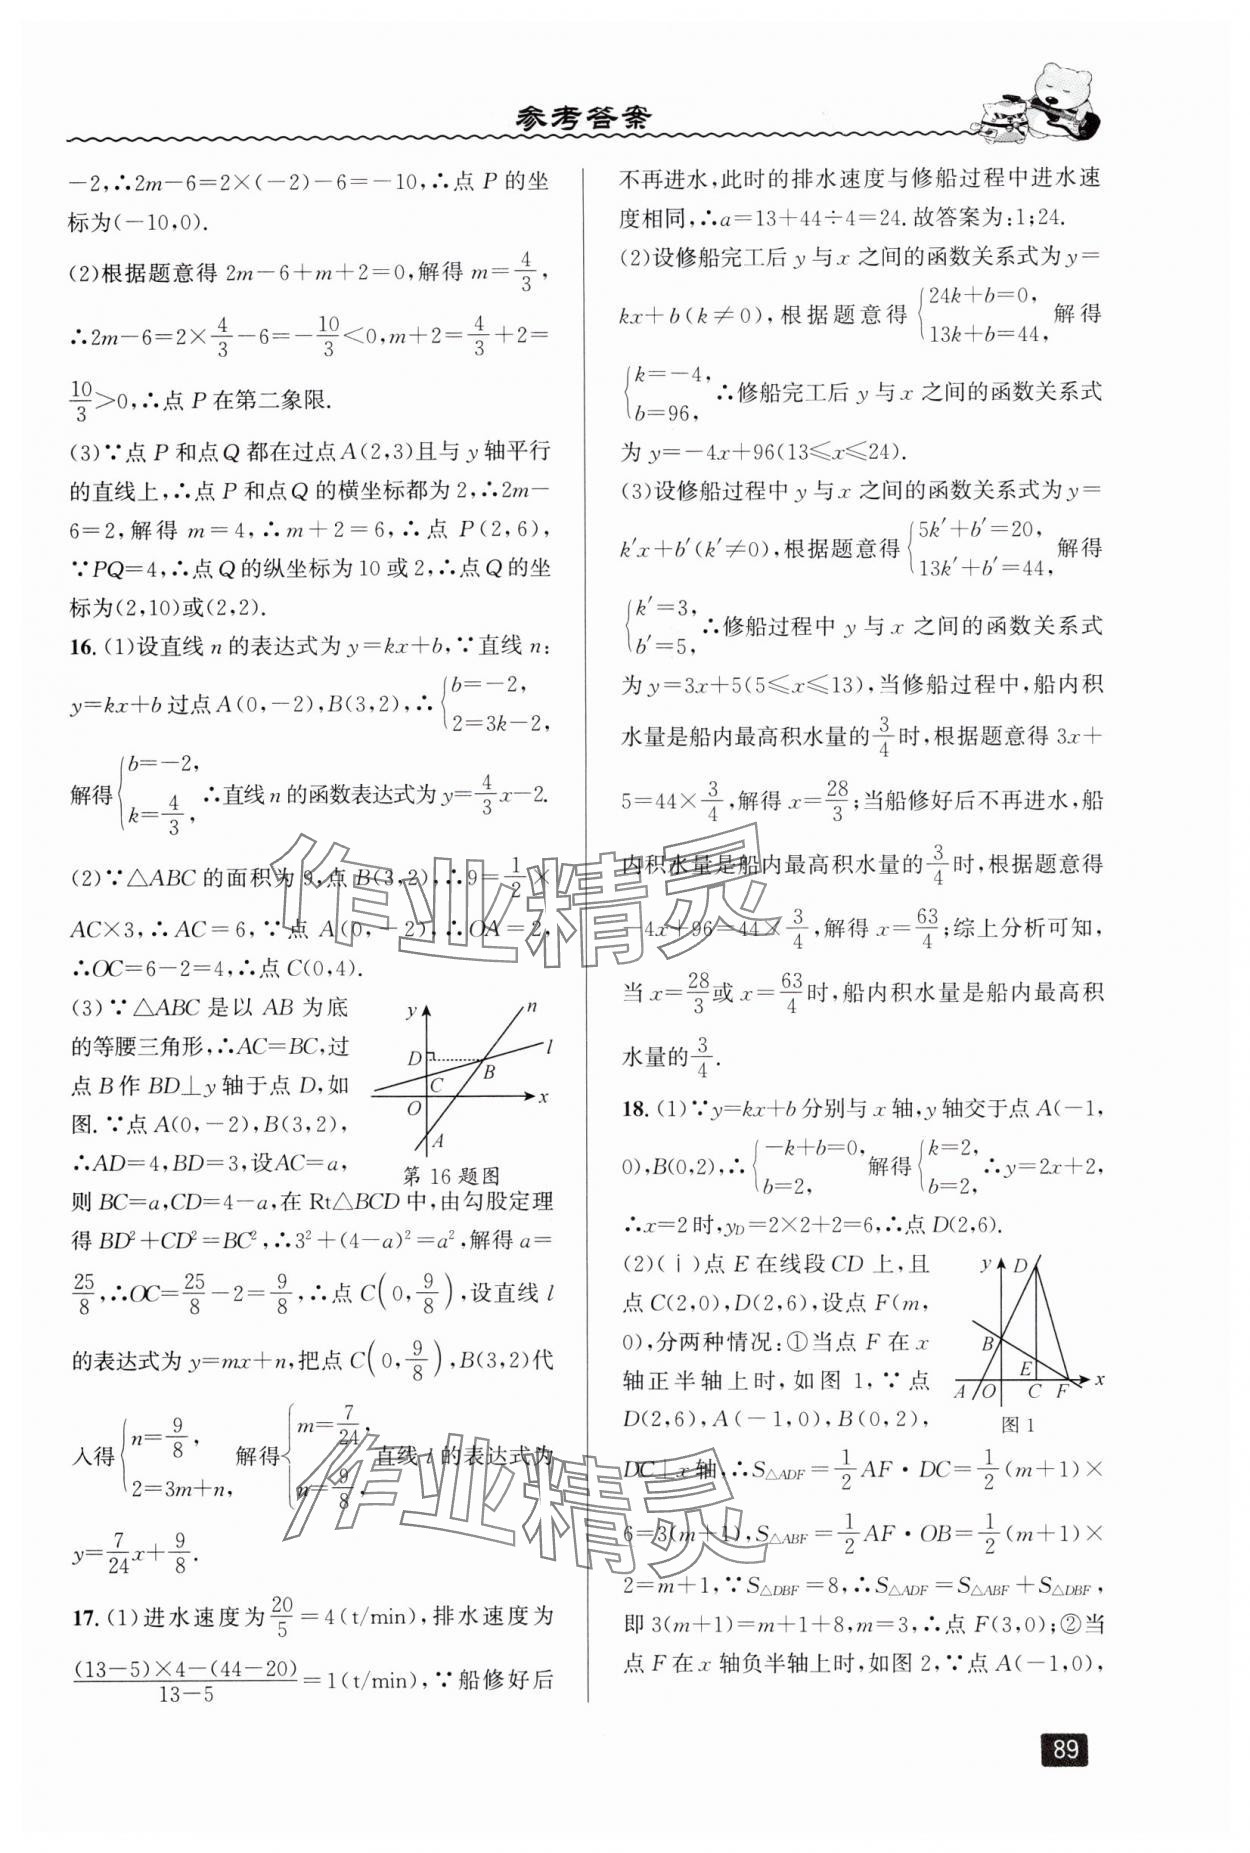 参考答案
-2,∴2m-6=2×(-2)-6=-10,∴点 P 的坐
标为(-10,0).
(2)根据题意得 2m-6+m+2=0,解得 m=4/3,
∴2m-6=2×4/3-6=-10/3<0,m+2=4/3+2=
10/3>0,∴点 P 在第二象限.
(3)∵点 P 和点Q 都在过点A(2,3)且与 y 轴平行
的直线上,∴点 P 和点Q 的横坐标都为 2,∴2m-
6=2,解得 m=4,∴m+2=6,∴点 P(2,6),
∵PQ=4,∴点 Q 的纵坐标为 10 或 2,∴点 Q 的坐
标为(2,10)或(2,2).
16.(1)设直线 n 的表达式为 y=kx+b,∵直线 n:
y=kx+b 过点 A(0,-2),B(3,2),∴{b=-2, 2=3k-2,
解得{b=-2, k=4/3, ∴直线 n 的函数表达式为 y=4/3x-2.
(2)∵△ABC 的面积为 9,点 B(3,2),∴9=1/2×
AC×3,∴AC=6,∵点 A(0,-2),∴OA=2,
∴OC=6-2=4,∴点 C(0,4).
(3)∵△ABC 是以 AB 为底
的等腰三角形,∴AC=BC,过
点 B 作 BD⊥y 轴于点 D,如
图.∵点 A(0,-2),B(3,2),
∴AD=4,BD=3,设AC=a,
y n l D B C O x A
第 16 题图
则 BC=a,CD=4-a,在 Rt△BCD 中,由勾股定理
得 BD²+CD²=BC²,∴3²+(4-a)²=a²,解得 a=
25/8,∴OC=25/8-2=9/8,∴点 C(0,9/8),设直线 l
的表达式为 y=mx+n,把点 C(0,9/8),B(3,2)代
入得{n=9/8, 2=3m+n, 解得{m=7/24, n=9/8, 直线 l 的表达式为
y=7/24x+9/8.
17.(1)进水速度为20/5=4(t/min),排水速度为
((13-5)×4-(44-20))/(13-5)=1(t/min),∵船修好后
不再进水,此时的排水速度与修船过程中进水速
度相同,∴a=13+44÷4=24.故答案为:1;24.
(2)设修船完工后 y 与 x 之间的函数关系式为 y=
kx+b(k≠0),根据题意得{24k+b=0, 13k+b=44, 解得
{k=-4, b=96, ∴修船完工后 y 与 x 之间的函数关系式
为 y=-4x+96(13≤x≤24).
(3)设修船过程中 y 与 x 之间的函数关系式为 y=
k′x+b′(k′≠0),根据题意得{5k′+b′=20, 13k′+b′=44, 解得
{k′=3, b′=5, ∴修船过程中 y 与 x 之间的函数关系式
为 y=3x+5(5≤x≤13),当修船过程中,船内积
水量是船内最高积水量的3/4时,根据题意得 3x+
5=44×3/4,解得 x=28/3;当船修好后不再进水,船
内积水量是船内最高积水量的3/4时,根据题意得
-4x+96=44×3/4,解得 x=63/4;综上分析可知,
当 x=28/3或 x=63/4时,船内积水量是船内最高积
水量的3/4.
18.(1)∵y=kx+b 分别与 x 轴,y 轴交于点 A(-1,
0),B(0,2),∴{-k+b=0, b=2, 解得{k=2, b=2, ∴y=2x+2,
∴x=2 时,yD=2×2+2=6,∴点 D(2,6).
(2)(ⅰ)点 E 在线段 CD 上,且
点 C(2,0),D(2,6),设点 F(m,
0),分两种情况:①当点 F 在 x
轴正半轴上时,如图 1,∵点
D(2,6),A(-1,0),B(0,2),
y D B E A O C F x
图 1
DC⊥x 轴,∴S△ADF=1/2AF·DC=1/2(m+1)×
6=3(m+1),S△ABF=1/2AF·OB=1/2(m+1)×
2=m+1,∵S△DBF=8,∴S△ADF=S△ABF+S△DBF,
即 3(m+1)=m+1+8,m=3,∴点 F(3,0);②当
点 F 在 x 轴负半轴上时,如图 2,∵点 A(-1,0),
作业精灵
作业精灵
89